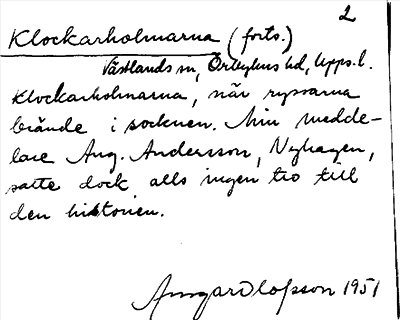 2
Klockarholmarna (forts.)
Västlands sn, Örbyhus hd, Upps.l.
Klockarholmarna, när ryssarna
brände i socknen. Min medde-
lare Aug. Andersson, Nyhagen,
satte dock alls ingen tro till
den historien.
Olofsson 1951